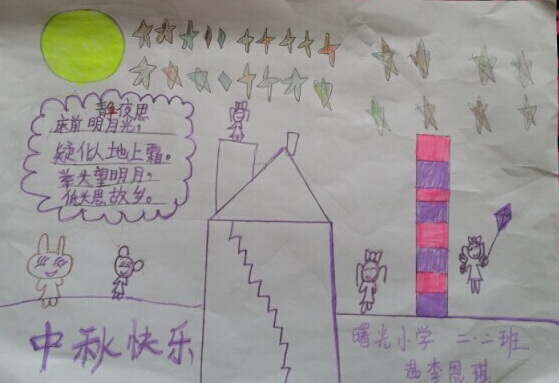 静夜思
床前明月光，
疑化人地上霜。
举头望明月，
低头思故乡。
中秋快乐
曙光小学 二·二班
温李恩琪